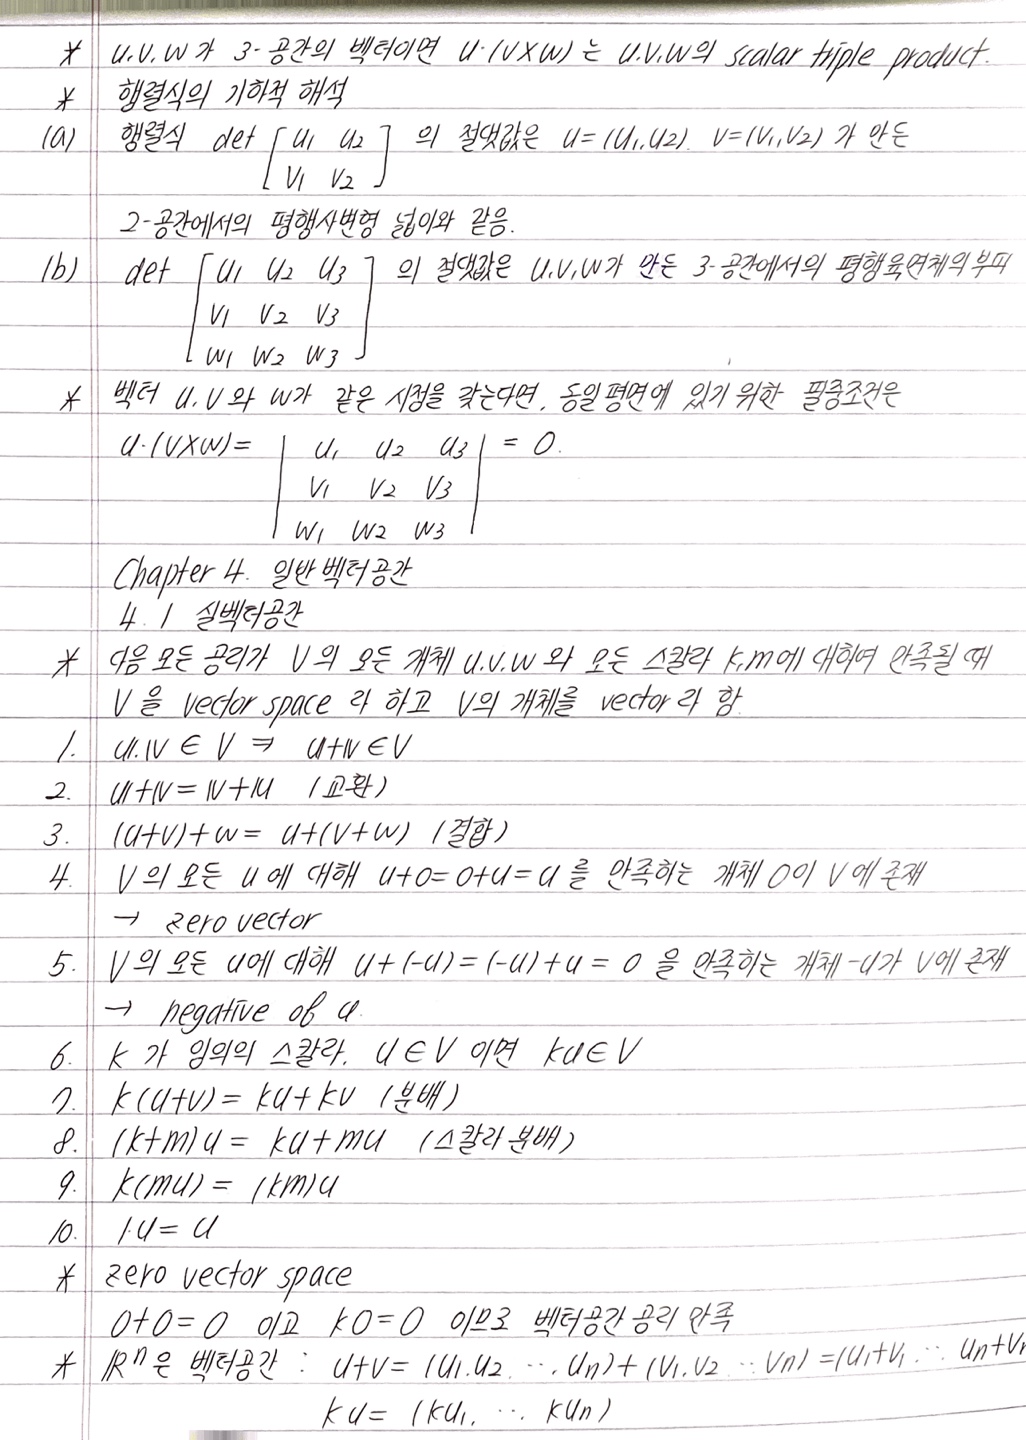 * u, v, w가 3-공간의 벡터이면 u·(v×w)는 u, v, w의 scalar triple product.
* 행렬식의 기하적 해석
(a) 행렬식 det [ u1 u2 ] 의 절댓값은 u=(u1, u2), v=(v1, v2)가 만든
[ v1 v2 ]
2-공간에서의 평행사변형 넓이와 같음.
(b) det [ u1 u2 u3 ] 의 절댓값은 u, v, w가 만든 3-공간에서의 평행육면체의 부피
v1 v2 v3
w1 w2 w3
* 벡터 u, v와 w가 같은 시점을 갖는다면, 동일 평면에 있기 위한 필충조건은
u·(v×w)= | u1 u2 u3 | = 0.
v1 v2 v3
w1 w2 w3
Chapter 4. 일반 벡터공간
4.1 실벡터공간
* 다음 모든 공리가 V의 모든 개체 u, v, w와 모든 스칼라 k, m에 대하여 만족될 때
V을 vector space라 하고 V의 개체를 vector라 함.
1. u, v ∈ V ⇒ u+v ∈ V
2. u+v = v+u (교환)
3. (u+v)+w = u+(v+w) (결합)
4. V의 모든 u에 대해 u+0=0+u=u를 만족하는 개체 0이 V에 존재
→ zero vector
5. V의 모든 u에 대해 u+(-u)=(-u)+u=0을 만족하는 개체 -u가 V에 존재
→ negative of u.
6. k가 임의의 스칼라, u∈V이면 ku∈V
7. k(u+v)=ku+kv (분배)
8. (k+m)u = ku+mu (스칼라 분배)
9. k(mu) = (km)u
10. 1·u = u
* zero vector space
0+0=0 이고 k0=0 이므로 벡터공간 공리 만족
* ℝⁿ은 벡터공간 : u+v = (u1, u2, ..., un)+(v1, v2 ... vn) = (u1+v1, ..., un+vn
ku = (ku1, ..., kun)